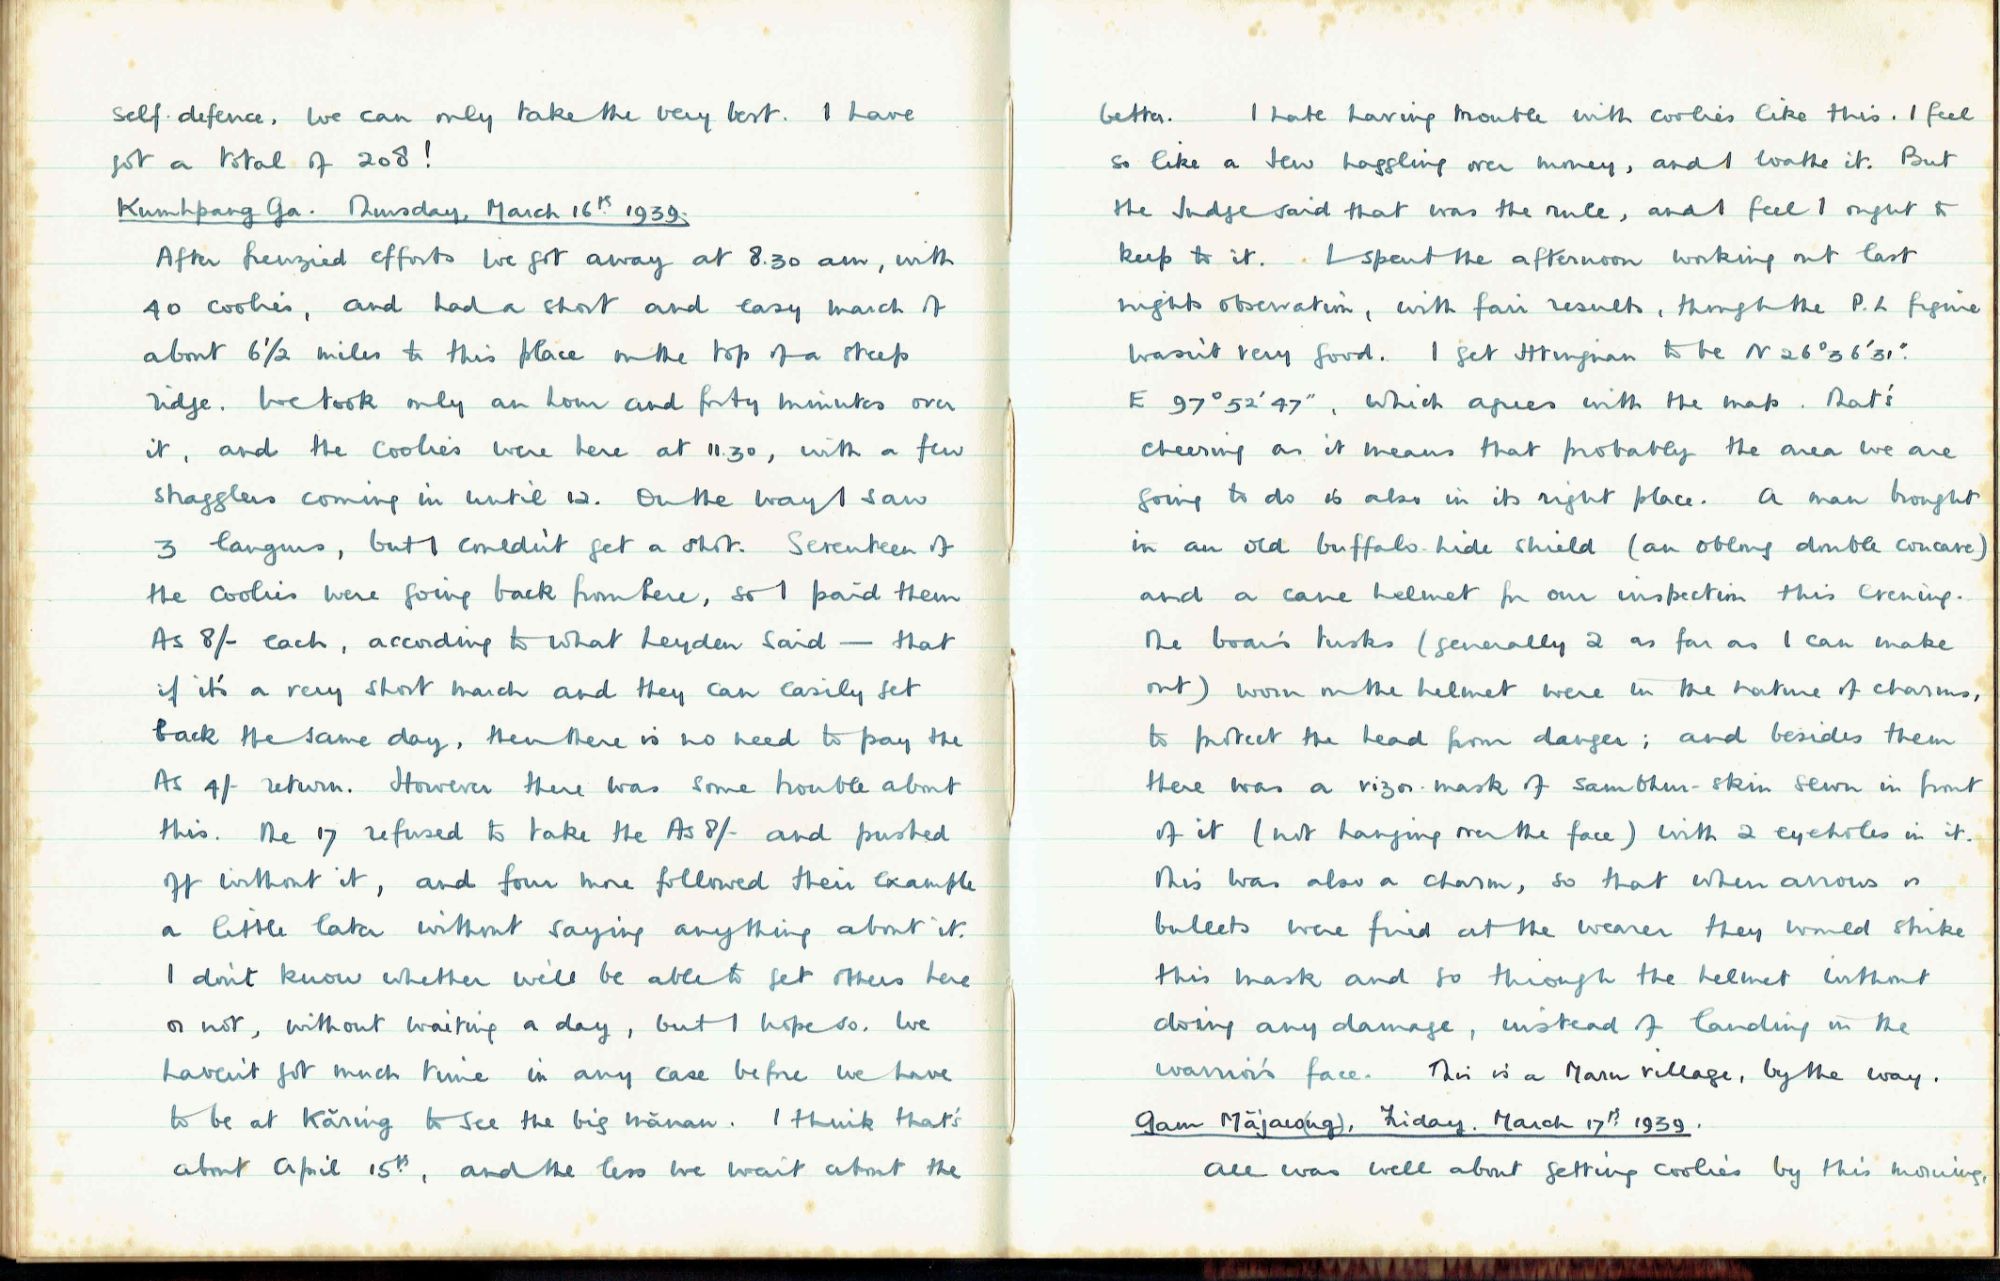 self-defence. We can only take the very best. I have
got a total of 208!
Kumhpang Ga. Thursday, March 16th 1939.
After frenzied efforts we got away at 8.30 am, with
40 coolies, and had a short and easy march of
about 6½ miles to this place on the top of a steep
ridge. We took only an hour and forty minutes over
it, and the coolies were here at 11.30, with a few
stragglers coming in until 12. On the way I saw
3 langurs, but I couldn't get a shot. Seventeen of
the coolies were going back from here, so I paid them
As 8/- each, according to what Leyden said — that
if it's a very short march and they can easily get
back the same day, then there is no need to pay the
As 4/- return. However there was some trouble about
this. The 17 refused to take the As 8/- and pushed
off without it, and four more followed their example
a little later without saying anything about it.
I don't know whether we'll be able to get others here
or not, without waiting a day, but I hope so. We
haven't got much time in any case before we have
to be at Kăring to see the big mănau. I think that's
about April 15th, and the less we wait about the
better. I hate having trouble with coolies like this. I feel
so like a Jew haggling over money, and I loathe it. But
the Judge said that was the rule, and I feel I ought to
keep to it. I spent the afternoon working out last
nights observation, with fair results, though the P.L figure
wasn't very good. I get Htingnan to be N 26°36'31".
E 97°52'47", which agrees with the map. That's
cheering as it means that probably the area we are
going to do is also in its right place. A man brought
in an old buffalo-hide shield (an oblong double concave)
and a cane helmet for our inspection this evening.
The boar's tusks (generally 2 as far as I can make
out) worn on the helmet were in the nature of charms,
to protect the head from danger; and besides them
there was a vizor-mask of sambhur-skin sewn in front
of it (not hanging over the face) with 2 eyeholes in it.
This was also a charm, so that when arrows or
bullets were fired at the wearer they would strike
this mask and go through the helmet without
doing any damage, instead of landing in the
warrior's face. This is a Maru village, by the way.
Gam Măjaw(ng), Friday. March 17th 1939.
All was well about getting coolies by this morning,